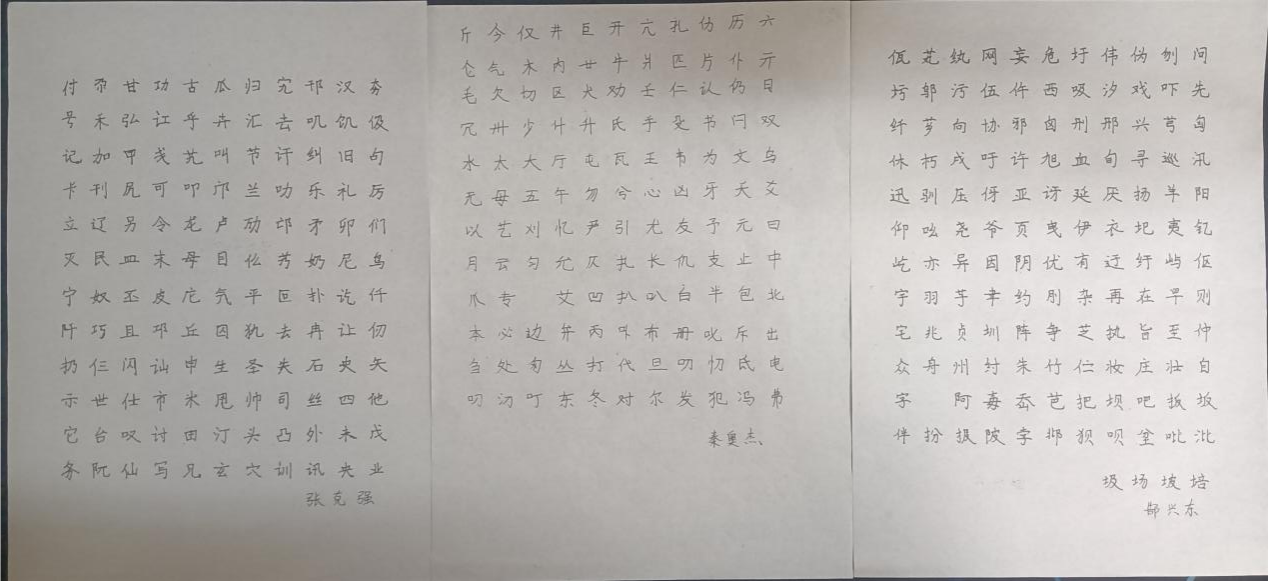 付 夼 甘 功 古 瓜 归 宄 邗 汉 夯
号 禾 弘 讧 乎 卉 汇 去 叽 饥 伋
记 加 甲 戋 艽 叫 节 讦 纠 旧 句
卡 刊 尻 可 叩 邝 兰 叻 乐 礼 厉
立 辽 另 令 龙 卢 劢 邙 矛 卯 们
灭 民 皿 末 母 目 仫 艿 奶 尼 鸟
宁 奴 丕 皮 庀 氕 平 叵 扑 讫 仟
阡 巧 且 邛 丘 囚 犰 去 冉 让 仞
扔 仨 闪 讪 申 生 圣 失 石 史 矢
示 世 仕 市 氺 甩 帅 司 丝 四 他
它 台 叹 讨 田 汀 头 凸 外 未 戊
务 阢 仙 写 兄 玄 穴 训 讯 央 业
张克强
斤 今 仅 井 巨 开 亢 孔 伪 历 六
仑 气 木 内 廿 牛 爿 匹 片 仆 亓
毛 欠 切 区 犬 劝 壬 仁 认 仍 日
冗 卅 少 廾 升 氏 手 殳 书 闩 双
水 太 大 厅 屯 瓦 王 韦 为 文 乌
无 毋 五 午 勿 兮 心 凶 牙 夭 爻
以 艺 刈 忆 尹 引 尤 友 予 元 曰
月 云 匀 允 仄 扎 长 仉 支 止 中
爪 专 艾 凹 扒 叭 白 半 包 北
本 必 边 弁 丙 卟 布 册 叱 斥 出
刍 处 匆 丛 打 代 旦 叨 忉 氐 电
叨 氻 叮 东 冬 对 尔 发 犯 冯 弗
秦奥杰
佤 芄 纨 网 妄 危 圩 伟 伪 刎 问
圬 邬 污 伍 仵 西 吸 汐 戏 吓 先
纤 芗 向 协 邪 囟 刑 邢 兴 芎 匈
休 朽 戌 吁 许 旭 血 旬 寻 巡 汛
迅 驯 压 伢 亚 讶 延 厌 扬 羊 阳
仰 吆 尧 爷 页 曳 伊 衣 圯 夷 钇
屹 亦 异 因 阴 优 有 迂 纡 屿 伛
宇 羽 芋 聿 约 刖 杂 再 在 早 则
宅 兆 贞 圳 阵 争 芝 执 旨 至 仲
众 舟 州 纣 朱 竹 伫 妆 庄 壮 自
字 阿 毐 岙 芭 把 坝 吧 扳 坂
伴 扮 报 陂 孛 邶 狈 呗 坌 吡 沘
圾 场 坡 培
郜兴东